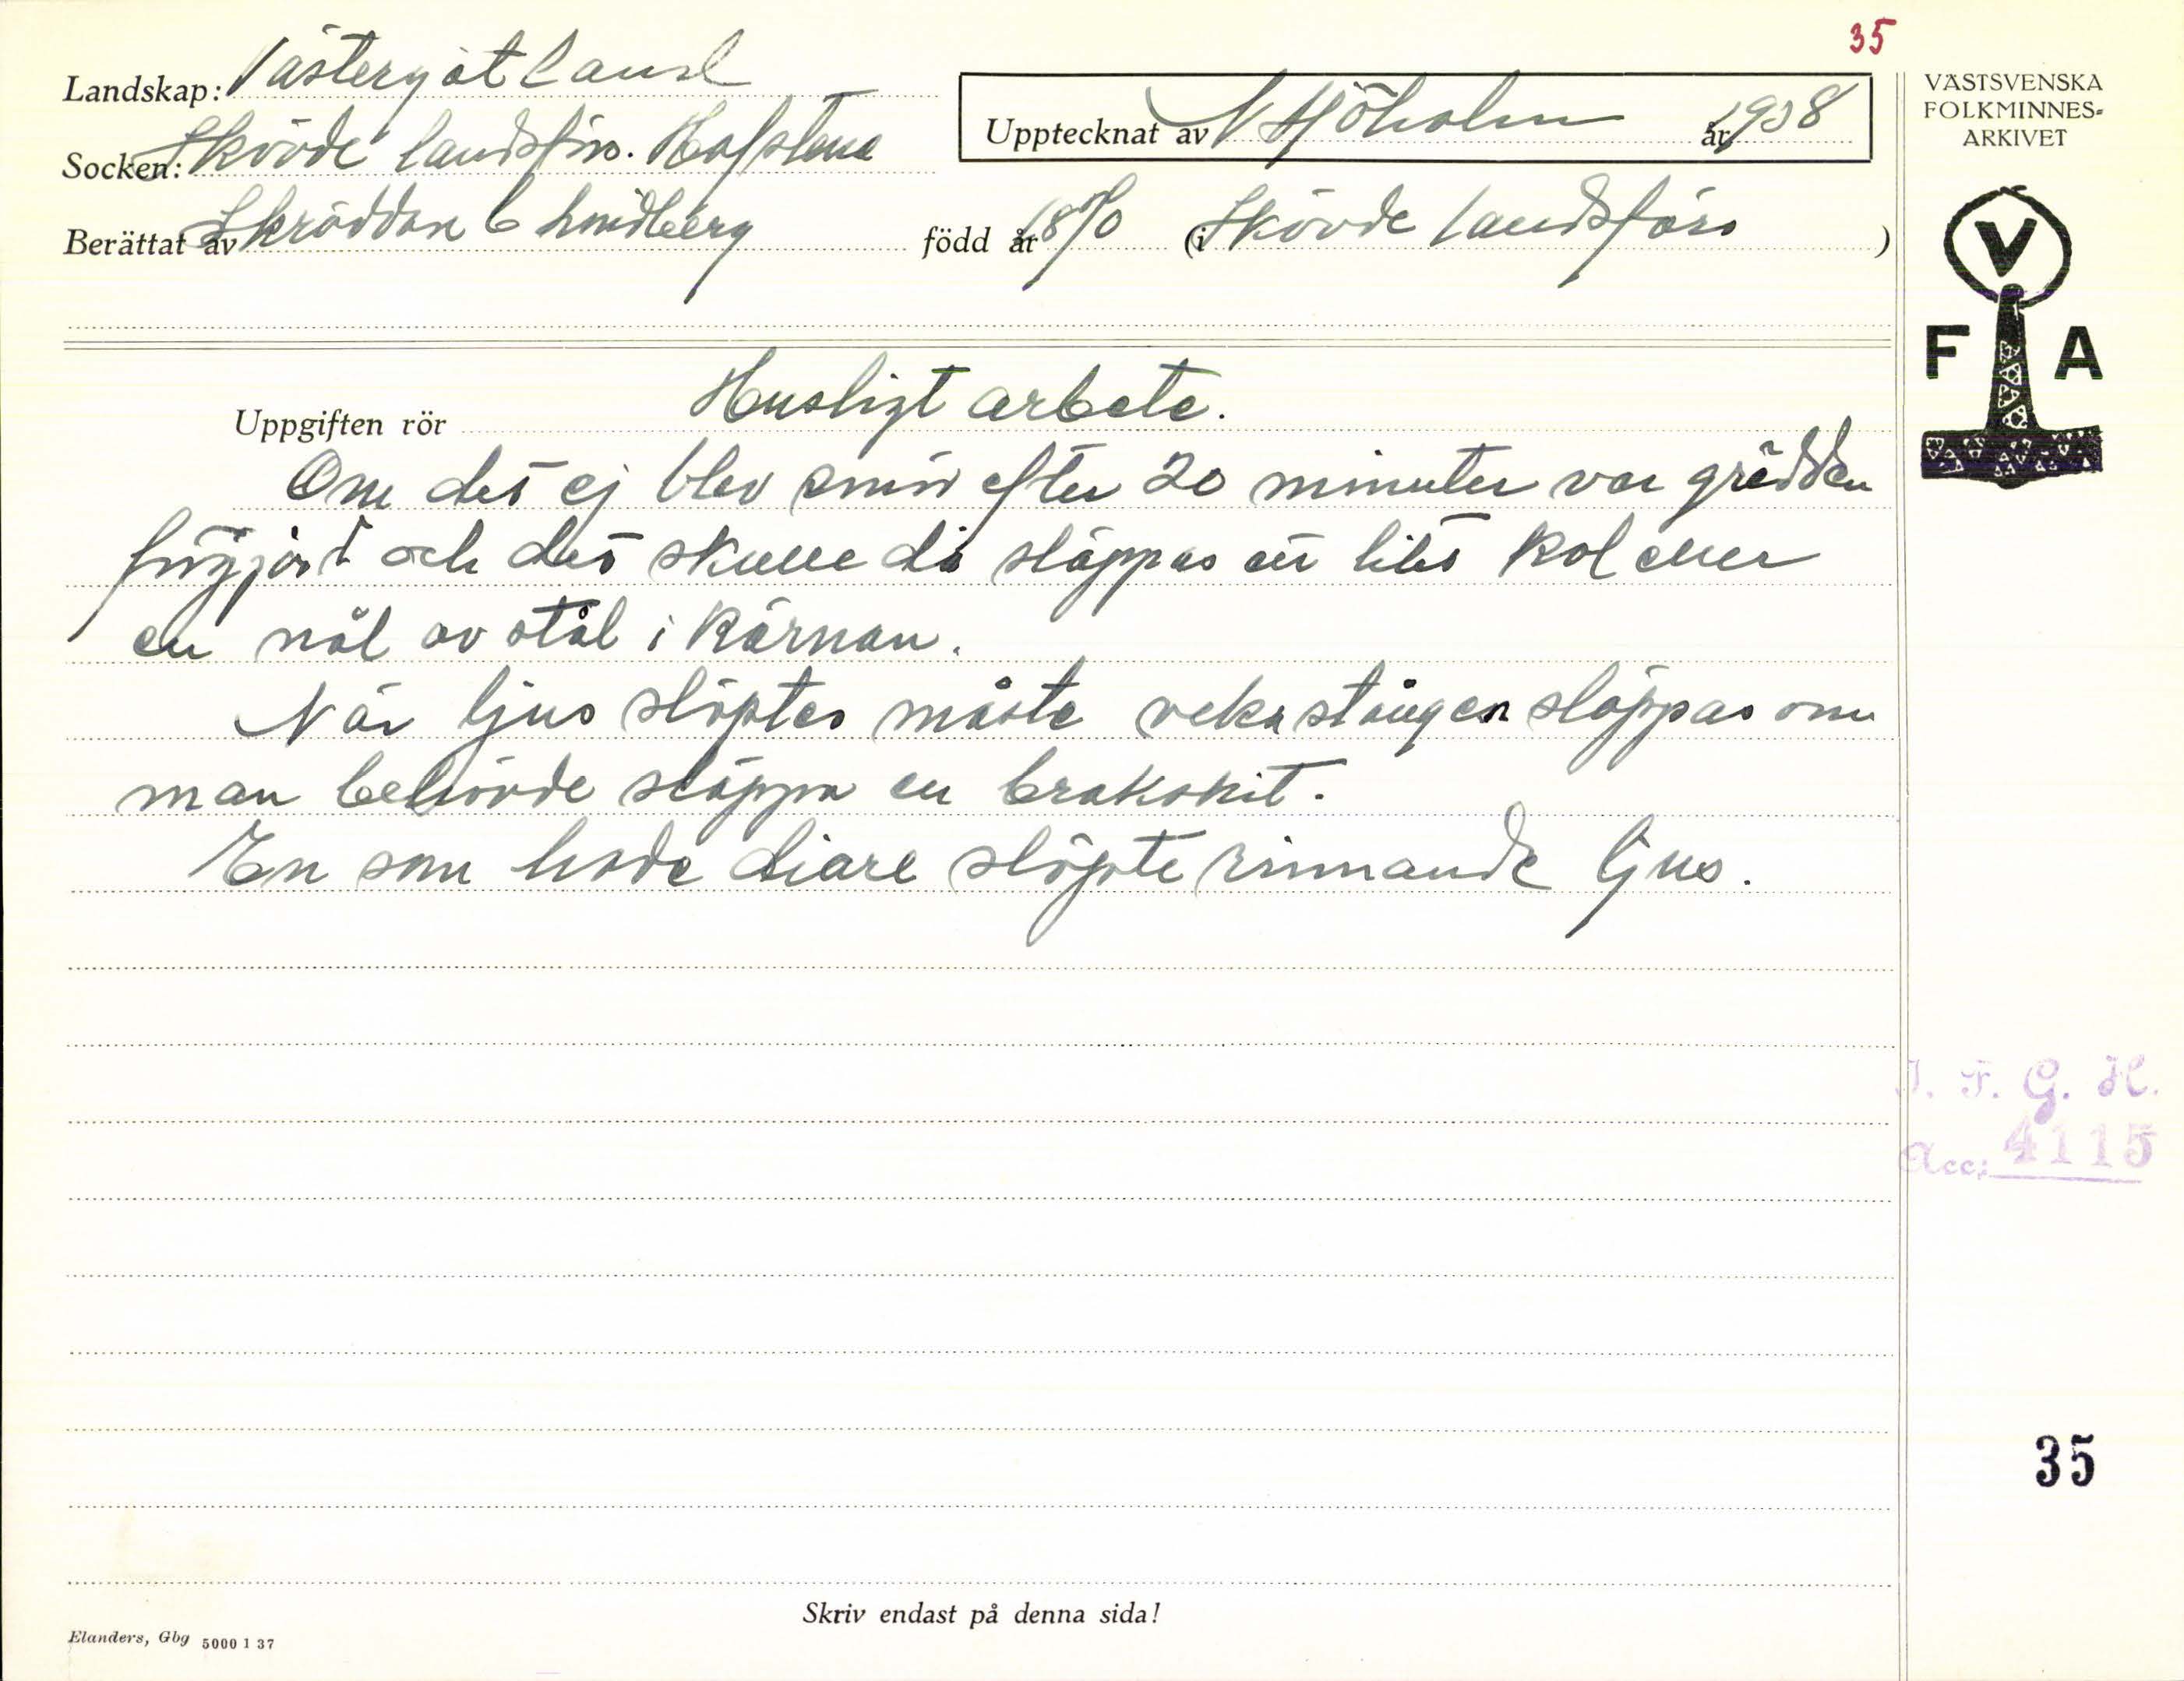 35
Landskap: Västergötland
Socken: Skövde landsförs. Hafstena
Upptecknat av N Sjöholm år 1938
Berättat av Skräddare C Lundberg född år 1870 (i Skövde landsförs )
VÄSTSVENSKA
FOLKMINNES-
ARKIVET
V
F A
Uppgiften rör Husligt arbete.
Om det ej blev smör efter 20 minuter var grädden
förgjord och det skulle då släppas ett litet kol eller
en nål av stål i kärnan.
När ljus stöptes måste vekastången släppas om
man behövde släppa en brakskit.
En som hade diare stöpte rinnande ljus.
I. F. G. H.
Acc: 4115
35
Skriv endast på denna sida!
Elanders, Gbg 5000 1 37